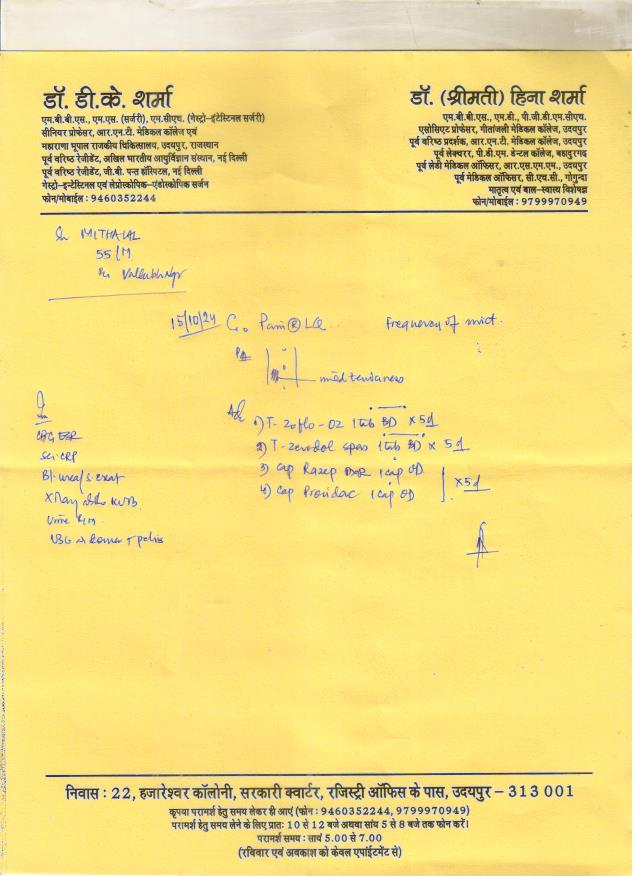 डॉ. डी.के. शर्मा
एम.बी.बी.एस., एम.एस. (सर्जरी), एम.सीएच. (गेस्ट्रो-इंटेस्टिनल सर्जरी)
सीनियर प्रोफेसर, आर.एन.टी. मेडिकल कॉलेज एवं
महाराणा भूपाल राजकीय चिकित्सालय, उदयपुर, राजस्थान
पूर्व वरिष्ठ रेजीडेंट, अखिल भारतीय आयुर्विज्ञान संस्थान, नई दिल्ली
पूर्व वरिष्ठ रेजीडेंट, जी.बी. पन्त हॉस्पिटल, नई दिल्ली
गेस्ट्रो-इन्टेस्टिनल एवं लेप्रोस्कोपिक-एंडोस्कोपिक सर्जन
फोन/मोबाईल : 9460352244
डॉ. (श्रीमती) हिना शर्मा
एम.बी.बी.एस., एम.डी., पी.जी.डी.एम.सीएच.
एसोसिएट प्रोफेसर, गीतांजली मेडिकल कॉलेज, उदयपुर
पूर्व वरिष्ठ प्रदर्शक, आर.एन.टी. मेडिकल कॉलेज, उदयपुर
पूर्व लेक्चरर, पी.डी.एम. डेन्टल कॉलेज, बहादुरगढ़
पूर्व लेडी मेडिकल ऑफिसर, आर.एस.एम.एम., उदयपुर
पूर्व मेडिकल ऑफिसर, सी.एच.सी., गोगुन्दा
मातृत्व एवं बाल-स्वास्थ्य विशेषज्ञ
फोन/मोबाईल : 9799970949
Sh MITHALAL
55/M
15/10/24 C/o Pain Ⓡ LQ Frequency of mict.
P/A
mild tenderness
Adv 1) T- Zoflo-02 1 tab BD x 5d
2) T- Zerodol spas 1 tab BD x 5d
3) Cap Razep DSR 1 cap OD
4) Cap Providac 1 cap OD x5d
CBC ESR
Se. CRP
Bl. urea/s. creat
X Ray KUB
Urine R/M
USG abdomen + pelvis
निवास : 22, हजारेश्वर कॉलोनी, सरकारी क्वार्टर, रजिस्ट्री ऑफिस के पास, उदयपुर – 313 001
कृपया परामर्श हेतु समय लेकर ही आएं (फोन : 9460352244, 9799970949)
परामर्श हेतु समय लेने के लिए प्रातः 10 से 12 बजे अथवा सांय 5 से 8 बजे तक फोन करें।
परामर्श समय : सायं 5.00 से 7.00
(रविवार एवं अवकाश को केवल एपांईटमेंट से)